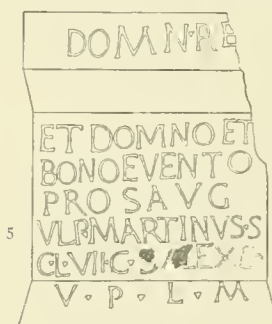 DOMN·RE
ET DOMNO ET
BONOEVENTO
PROSAVG
5 VLP·MARTINVS·S
V · P · L · M